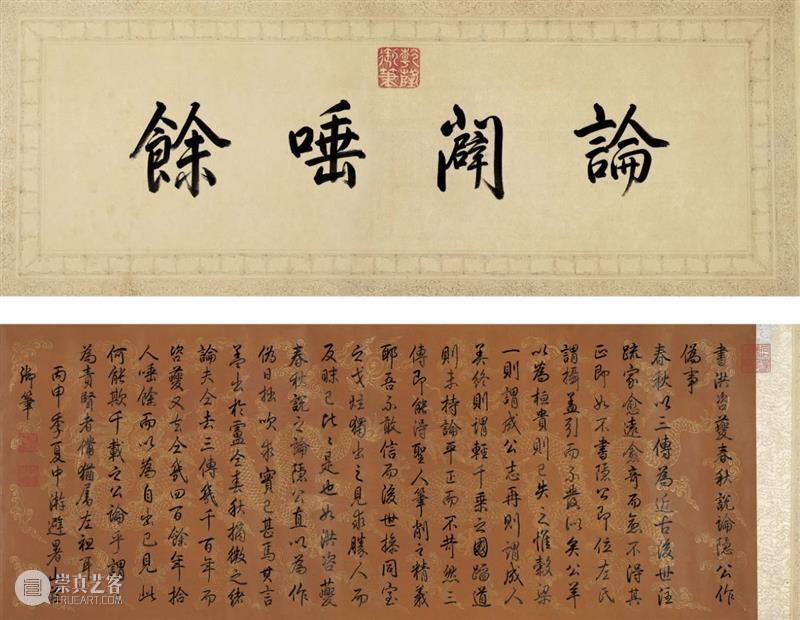 乾隆御筆
論闢唾餘
書洪咨夔春秋說論隱公作
偽事
春秋以三傳為近古後世注
疏家愈遠愈奇而無不得其
正即如不書隱公即位左氏
謂攝蓋引而不發似矣公羊
以為桓貴則已失之惟穀梁
一則謂成公志再則謂成人
美終則謂輕千乘之國蹈道
則未持論平正而不苛然三
傳即能得聖人筆削之精義
耶吾不敢信而後世操同室
之戈炫獨出之見求勝人而
反昧己比比是也如洪咨夔
春秋說之論隱公直以為作
偽日拙吹求實已甚焉其言
蓋出於盧仝春秋摘微之緒
論夫仝去三傳幾千百年而
咨夔又去仝幾四百餘年拾
人唾餘而以為自出己見此
何能欺千載之公論乎謂
為責賢者備猶屬左袒耳
丙申季夏中澣避暑
御筆
崇真艺客